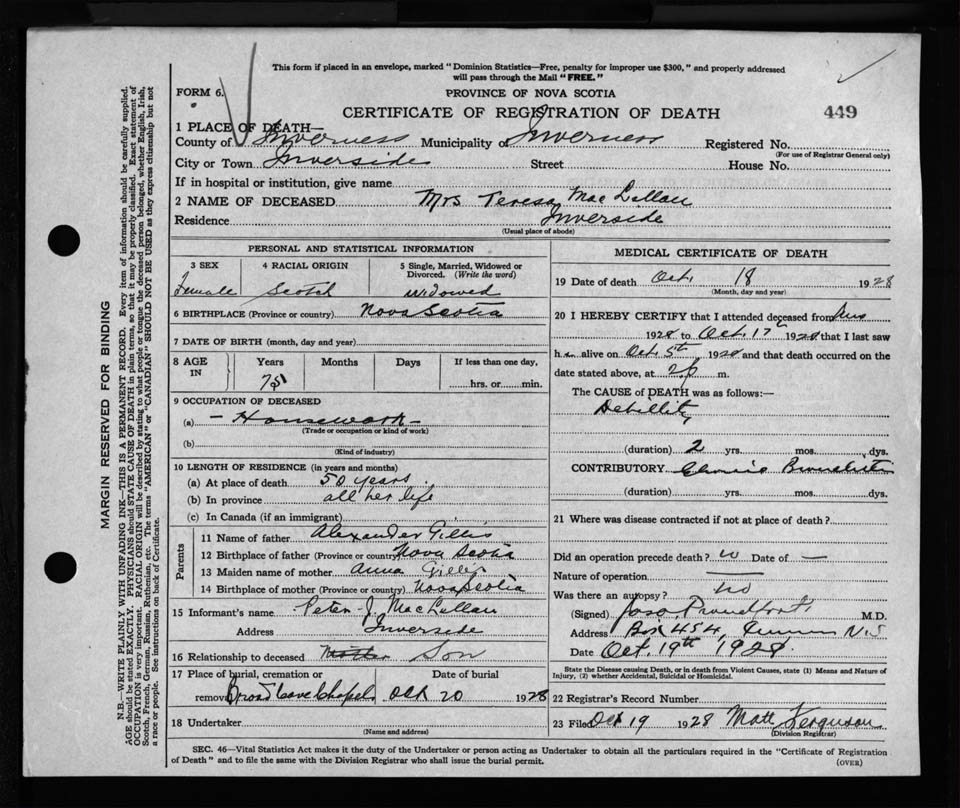 This form if placed in an envelope, marked "Dominion Statistics—Free, penalty for improper use $300," and properly addressed
will pass through the Mail "FREE."
FORM 6.
PROVINCE OF NOVA SCOTIA
CERTIFICATE OF REGISTRATION OF DEATH
449
1 PLACE OF DEATH—
County of Inverness Municipality of Inverness Registered No.
(For use of Registrar General only)
City or Town Inverside Street House No.
If in hospital or institution, give name
2 NAME OF DECEASED Mrs Teresa MacLellan
Residence Inverside
(Usual place of abode)
PERSONAL AND STATISTICAL INFORMATION
3 SEX 4 RACIAL ORIGIN 5 Single, Married, Widowed or
Divorced. (Write the word)
Female Scotch widowed
6 BIRTHPLACE (Province or country) Nova Scotia
7 DATE OF BIRTH (month, day and year)
8 AGE IN Years Months Days If less than one day,
hrs. or min.
9 OCCUPATION OF DECEASED
(a) — Housework —
(Trade or occupation or kind of work)
(b)
(Kind of industry)
10 LENGTH OF RESIDENCE (in years and months)
(a) At place of death 50 years.
(b) In province all her life
(c) In Canada (if an immigrant)
Parents
11 Name of father Alexander Gillis
12 Birthplace of father (Province or country) Nova Scotia
13 Maiden name of mother Anna Gillis
14 Birthplace of mother (Province or country) Nova Scotia
15 Informant's name Peter J. MacLellan
Address Inverside
16 Relationship to deceased Mother Son
17 Place of burial, cremation or Date of burial
removal Broad Cove Chapel Oct 20 1928
18 Undertaker
(Name and address)
MEDICAL CERTIFICATE OF DEATH
19 Date of death Oct. 18 1928
(Month, day and year)
20 I HEREBY CERTIFY that I attended deceased from
1928 to Oct. 17th 1928 that I last saw
h er alive on Oct. 5th 1928 and that death occurred on the
date stated above, at 2 p m.
The CAUSE of DEATH was as follows:—
Debility
(duration) 2 yrs. mos. dys.
CONTRIBUTORY Chronic Bronchitis
(duration) yrs. mos. dys.
21 Where was disease contracted if not at place of death?
Did an operation precede death? no Date of —
Nature of operation —
Was there an autopsy? no
(Signed) Proudfoot M.D.
Address Box 454, N.S
Date Oct. 19th 1928.
State the Disease causing Death, or in death from Violent Causes, state (1) Means and Nature of
Injury, (2) whether Accidental, Suicidal or Homicidal.
22 Registrar's Record Number
23 Filed Oct 19 1928 Matt Ferguson
(Division Registrar)
SEC. 46—Vital Statistics Act makes it the duty of the Undertaker or person acting as Undertaker to obtain all the particulars required in the "Certificate of Registration
of Death" and to file the same with the Division Registrar who shall issue the burial permit.
(OVER)
MARGIN RESERVED FOR BINDING
N.B.—WRITE PLAINLY WITH UNFADING INK—THIS IS A PERMANENT RECORD. Every item of information should be carefully supplied.
AGE should be stated EXACTLY. PHYSICIANS should STATE CAUSE OF DEATH in plain terms, so that it may be properly classified. Exact statement of
OCCUPATION is very important. RACIAL ORIGIN will be described by stating to what people or tongue the deceased person belonged, whether English, Irish,
Scotch, French, German, Russian, Ruthenian, etc. The terms "AMERICAN" or "CANADIAN" SHOULD NOT BE USED as they express citizenship but not
a race or people. See instructions on back of Certificate.